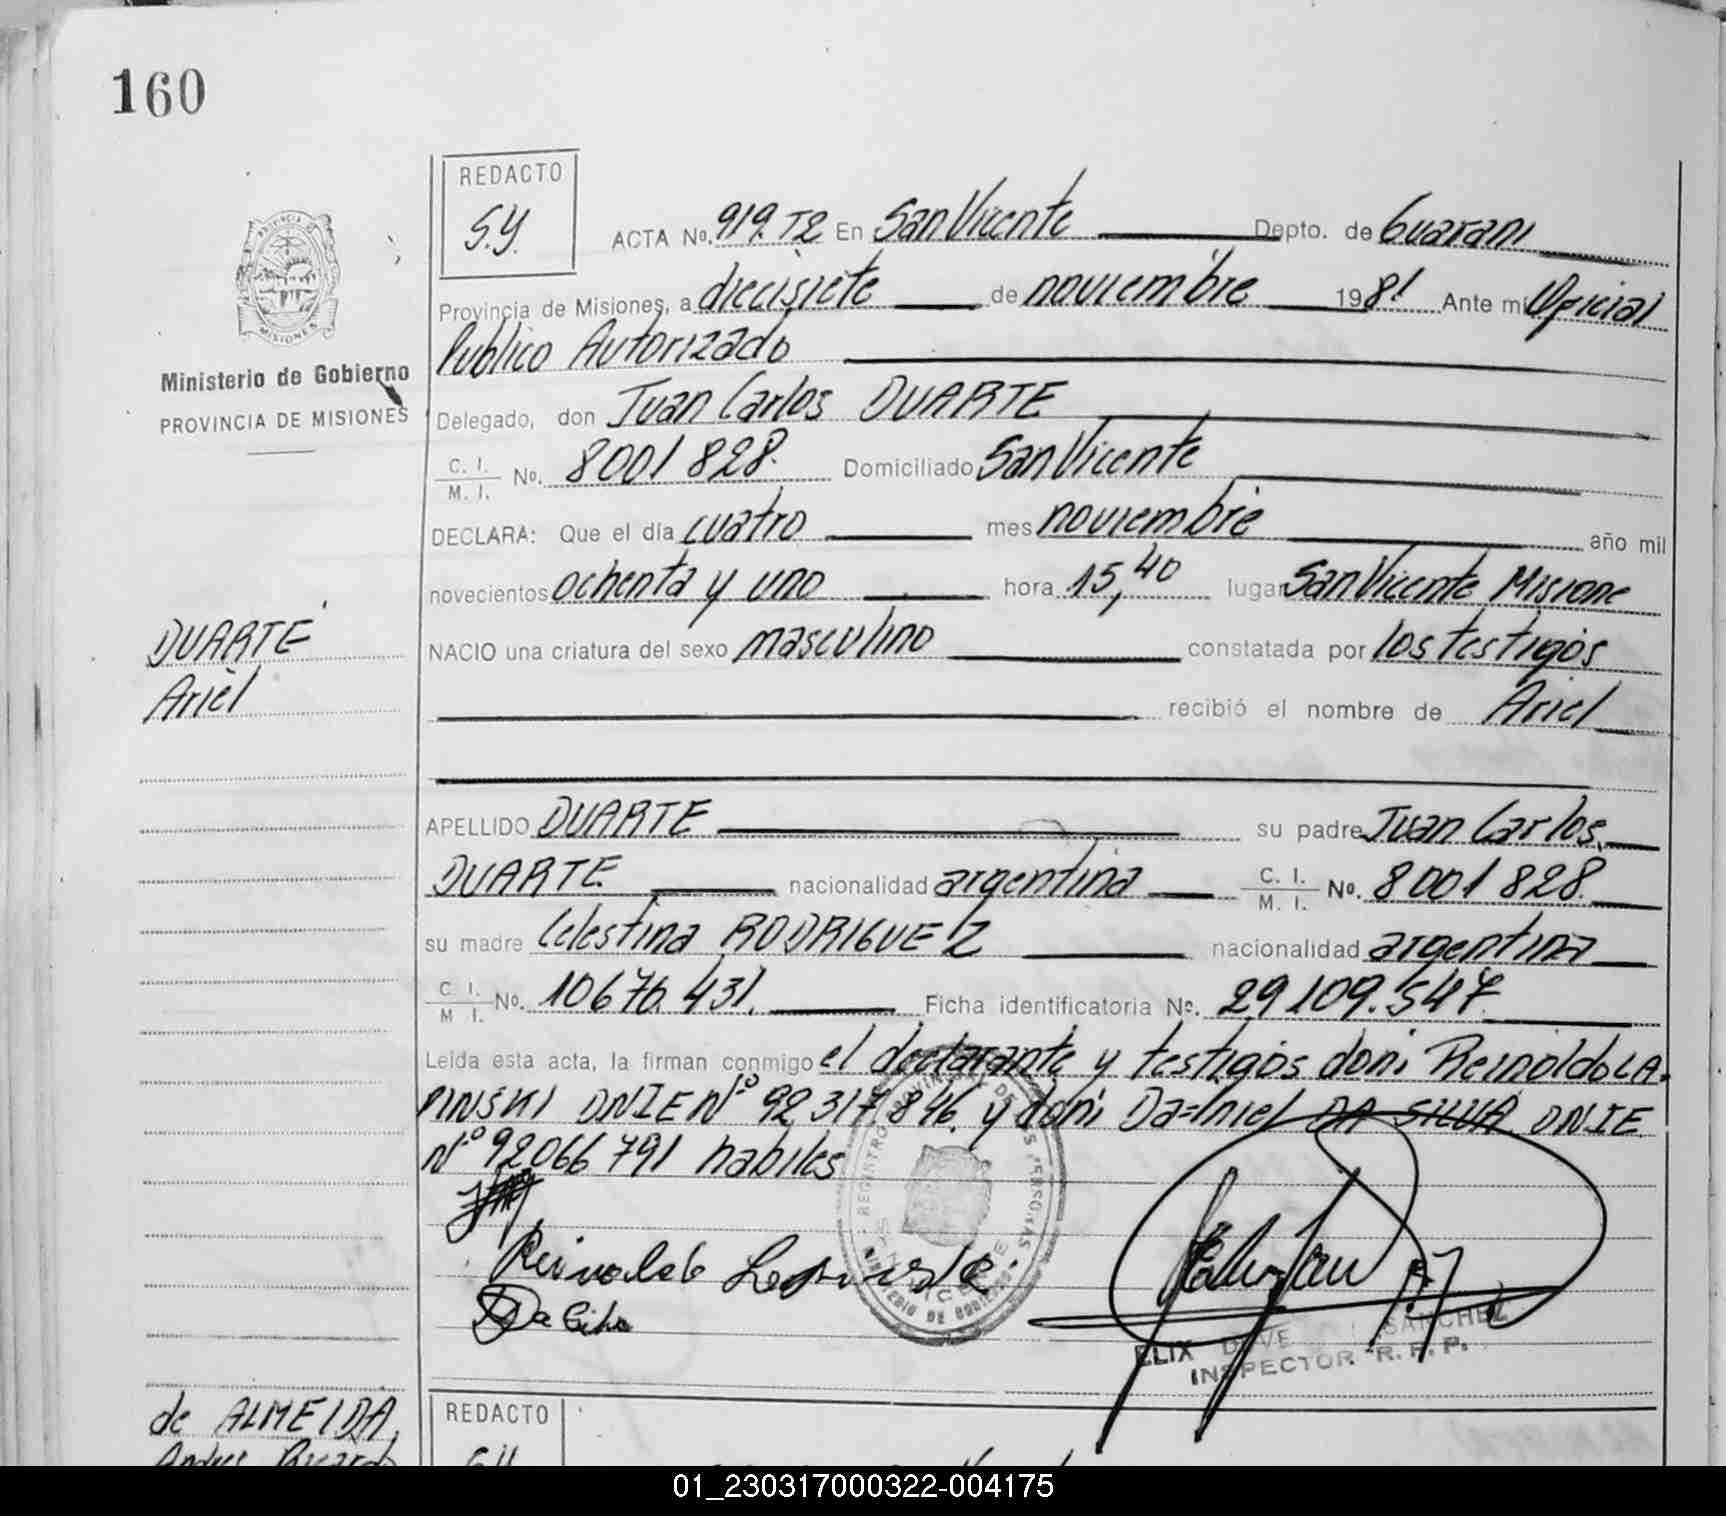 160
REDACTO
S.Y.
ACTA No. 919. T2 En San Vicente Depto. de Guarani
Provincia de Misiones, a diecisiete de noviembre 1981 Ante mi Oficial
Publico Autorizado
Ministerio de Gobierno
PROVINCIA DE MISIONES
Delegado, don Juan Carlos DUARTE
C. I. / M. I. No. 8001828. Domiciliado San Vicente
DECLARA: Que el día cuatro mes noviembre año mil
novecientos ochenta y uno hora 15,40 lugar San Vicente Misione
DUARTE
Ariel
NACIO una criatura del sexo masculino constatada por los testigos
recibió el nombre de Ariel
APELLIDO DUARTE su padre Juan Carlos
DUARTE nacionalidad argentina C. I. / M. I. No. 8001828.
su madre Celestina RODRIGUEZ nacionalidad argentina
C. I. / M I. No. 10676.431. Ficha identificatoria No. 29109.547.
Leida esta acta, la firman conmigo el declarante y testigos don: Reinoldo LA-
PINSKI DNIE Nº 92317846. y don: Da=Iniel DA SILVA DNIE
Nº 92066791 habiles
Da Silva
REGISTRO PROVINCIAL DE LAS PERSONAS
MINISTERIO DE GOBIERNO
ELIX SANCHEZ
INSPECTOR R. P. P.
de ALMEIDA,
Andres Ricardo
REDACTO
01_230317000322-004175